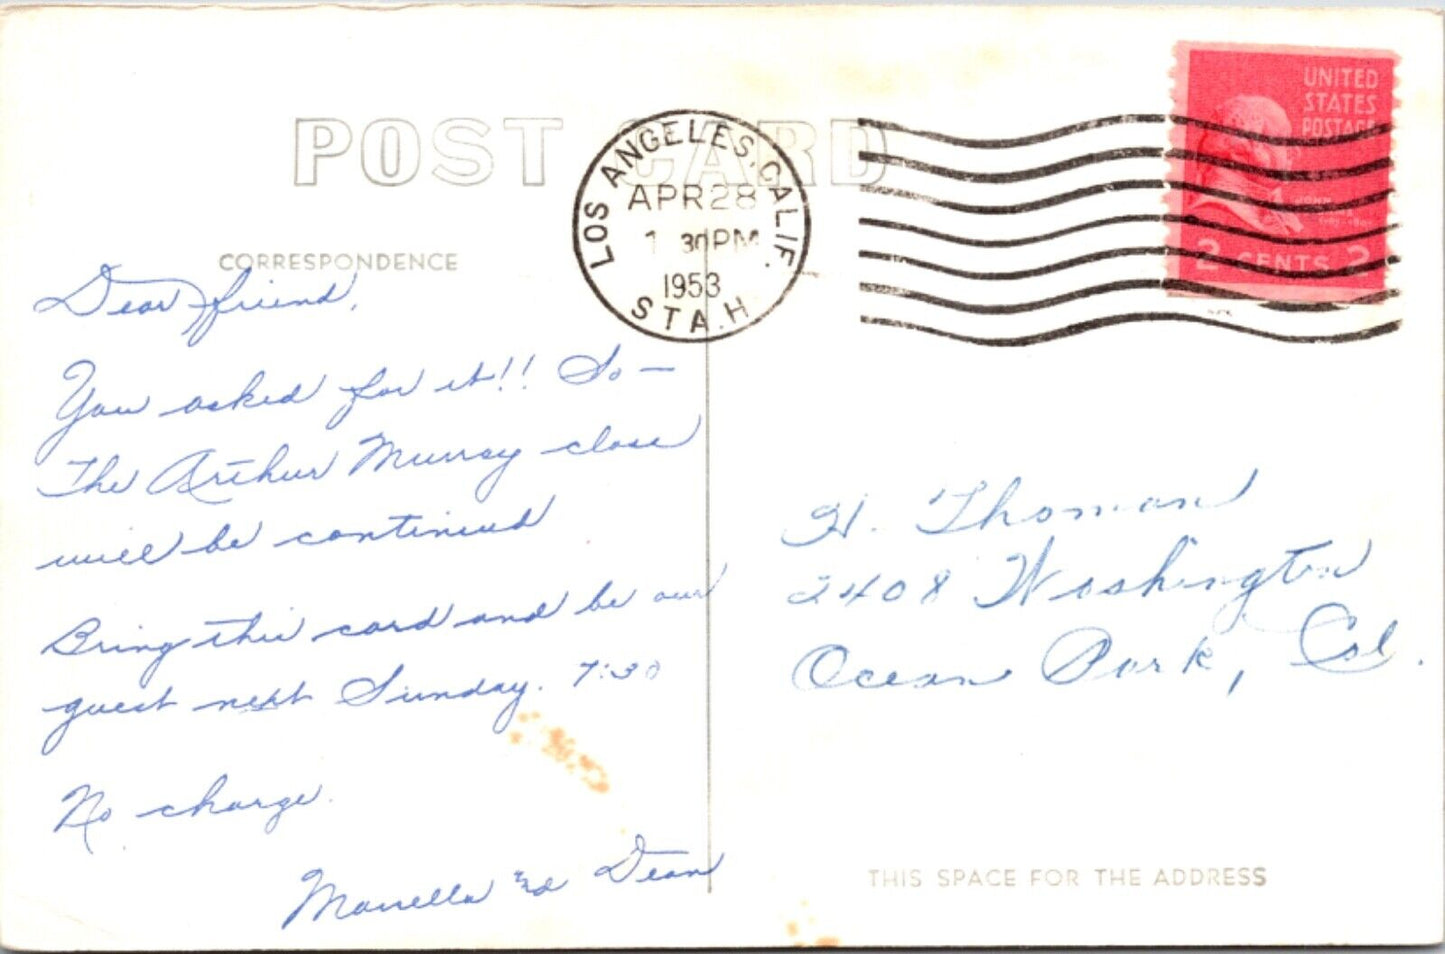 POST CARD
CORRESPONDENCE
LOS ANGELES, CALIF.
APR 28
1 30 PM
1953
STA. H
UNITED
STATES
POSTAGE
JOHN
2 CENTS 2
Dear friend,
You asked for it!! So —
The Arthur Murray class
will be continued
Bring this card and be our
guest next Sunday. 7:30
No charge.
Dean
H. Thoman
2408 Washington
Ocean Park, Cal.
THIS SPACE FOR THE ADDRESS